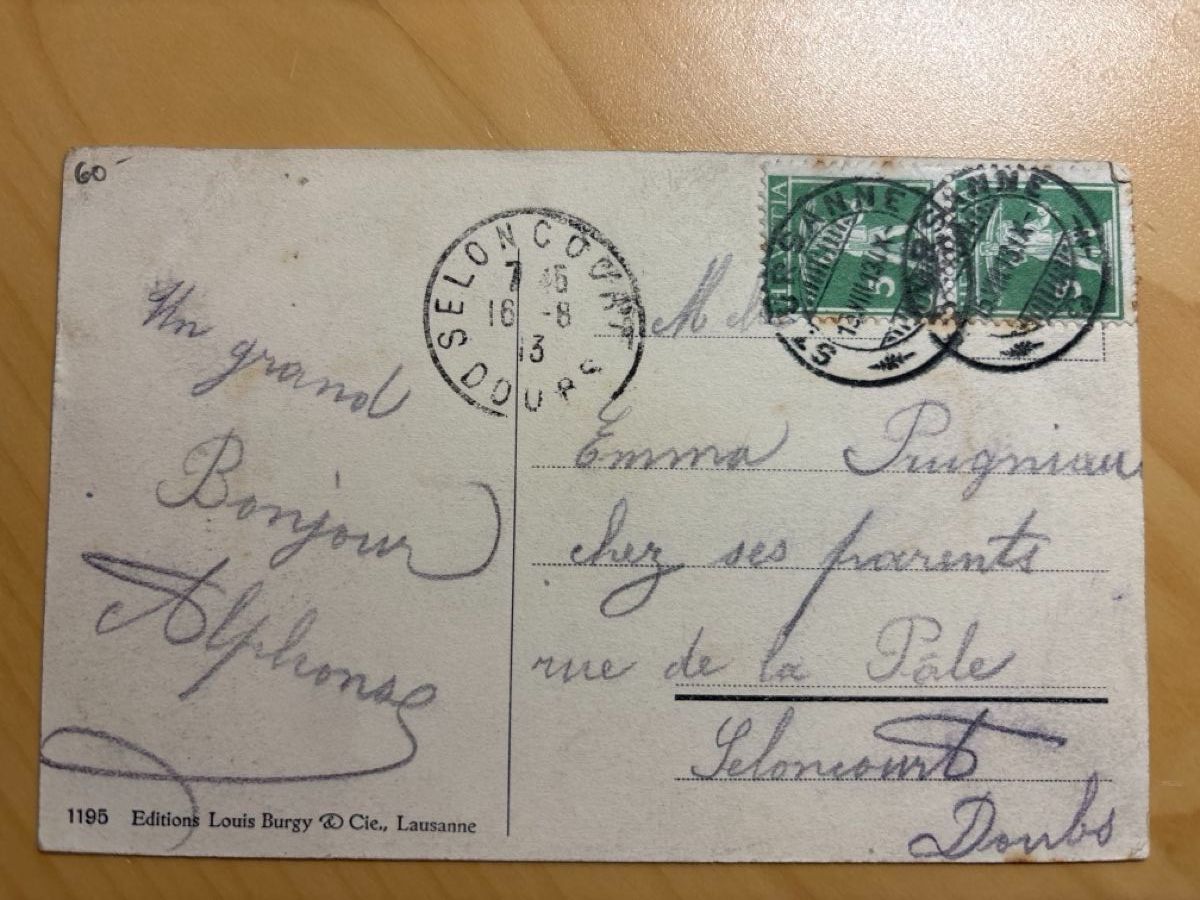 60
Un grand
Bonjour
Alphonse
1195 Editions Louis Burgy & Cie., Lausanne
SELONCOURT
7 45
16 -8
13
DOUBS
HELVETIA
5
5
ST-URSANNE
ST-URSANNE
Emma
chez ses parents
rue de la Pâle
Seloncourt
Doubs